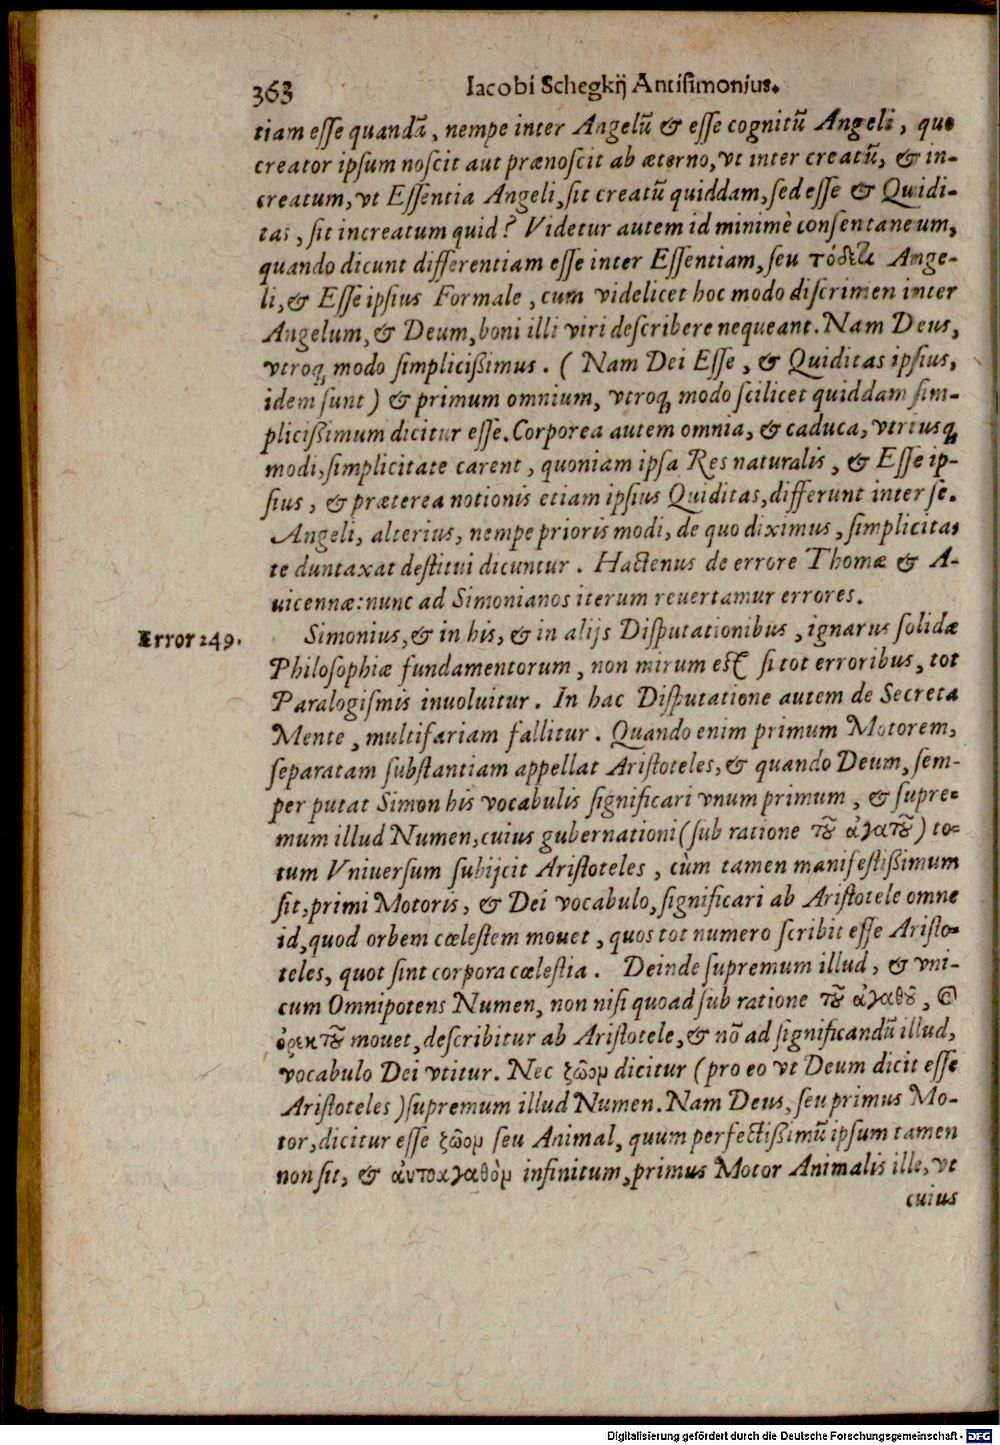 363 Iacobi Schegkij Antisimonius.
tiam esse quandā, nempe inter Angelū & esse cognitū Angeli, quo
creator ipsum noscit aut prænoscit ab æterno, vt inter creatū, & in-
creatum, vt Essentia Angeli, sit creatū quiddam, sed esse & Quidi-
tas, sit increatum quid? Videtur autem id minimè consentaneum,
quando dicunt differentiam esse inter Essentiam, seu τόδετι Ange-
li, & Esse ipsius Formale, cum videlicet hoc modo discrimen inter
Angelum, & Deum, boni illi viri describere nequeant. Nam Deus,
vtroq; modo simplicißimus. (Nam Dei Esse, & Quiditas ipsius,
idem sunt) & primum omnium, vtroq; modo scilicet quiddam sim-
plicißimum dicitur esse. Corporea autem omnia, & caduca, vtriusq;
modi, simplicitate carent, quoniam ipsa Res naturalis, & Esse ip-
sius, & præterea notionis etiam ipsius Quiditas, differunt inter se.
Angeli, alterius, nempe prioris modi, de quo diximus, simplicita-
te duntaxat destitui dicuntur. Hactenus de errore Thomæ & A-
uicennæ: nunc ad Simonianos iterum reuertamur errores.
Error 249. Simonius, & in his, & in alijs Disputationibus, ignarus solidæ
Philosophiæ fundamentorum, non mirum est si tot erroribus, tot
Paralogismis inuoluitur. In hac Disputatione autem de Secreta
Mente, multifariam fallitur. Quando enim primum Motorem,
separatam substantiam appellat Aristoteles, & quando Deum, sem-
per putat Simon his vocabulis significari vnum primum, & supre-
mum illud Numen, cuius gubernationi (sub ratione τοῦ ἀγατοῦ) to-
tum Vniuersum subijcit Aristoteles, cùm tamen manifestißimum
sit, primi Motoris, & Dei vocabulo, significari ab Aristotele omne
id, quod orbem cœlestem mouet, quos tot numero scribit esse Aristo-
teles, quot sint corpora cœlestia. Deinde supremum illud, & vni-
cum Omnipotens Numen, non nisi quoad sub ratione τοῦ ἀγαθοῦ, @
ὀρεκτοῦ mouet, describitur ab Aristotele, & nō ad significandū illud,
vocabulo Dei vtitur. Nec ζῶον dicitur (pro eo vt Deum dicit esse
Aristoteles) supremum illud Numen. Nam Deus, seu primus Mo-
tor, dicitur esse ζῶον seu Animal, quum perfectißimū ipsum tamen
non sit, & ἀυτοαγαθὸν infinitum, primus Motor Animalis ille, vt
cuius
Digitalisierung gefördert durch die Deutsche Forschungsgemeinschaft - DFG